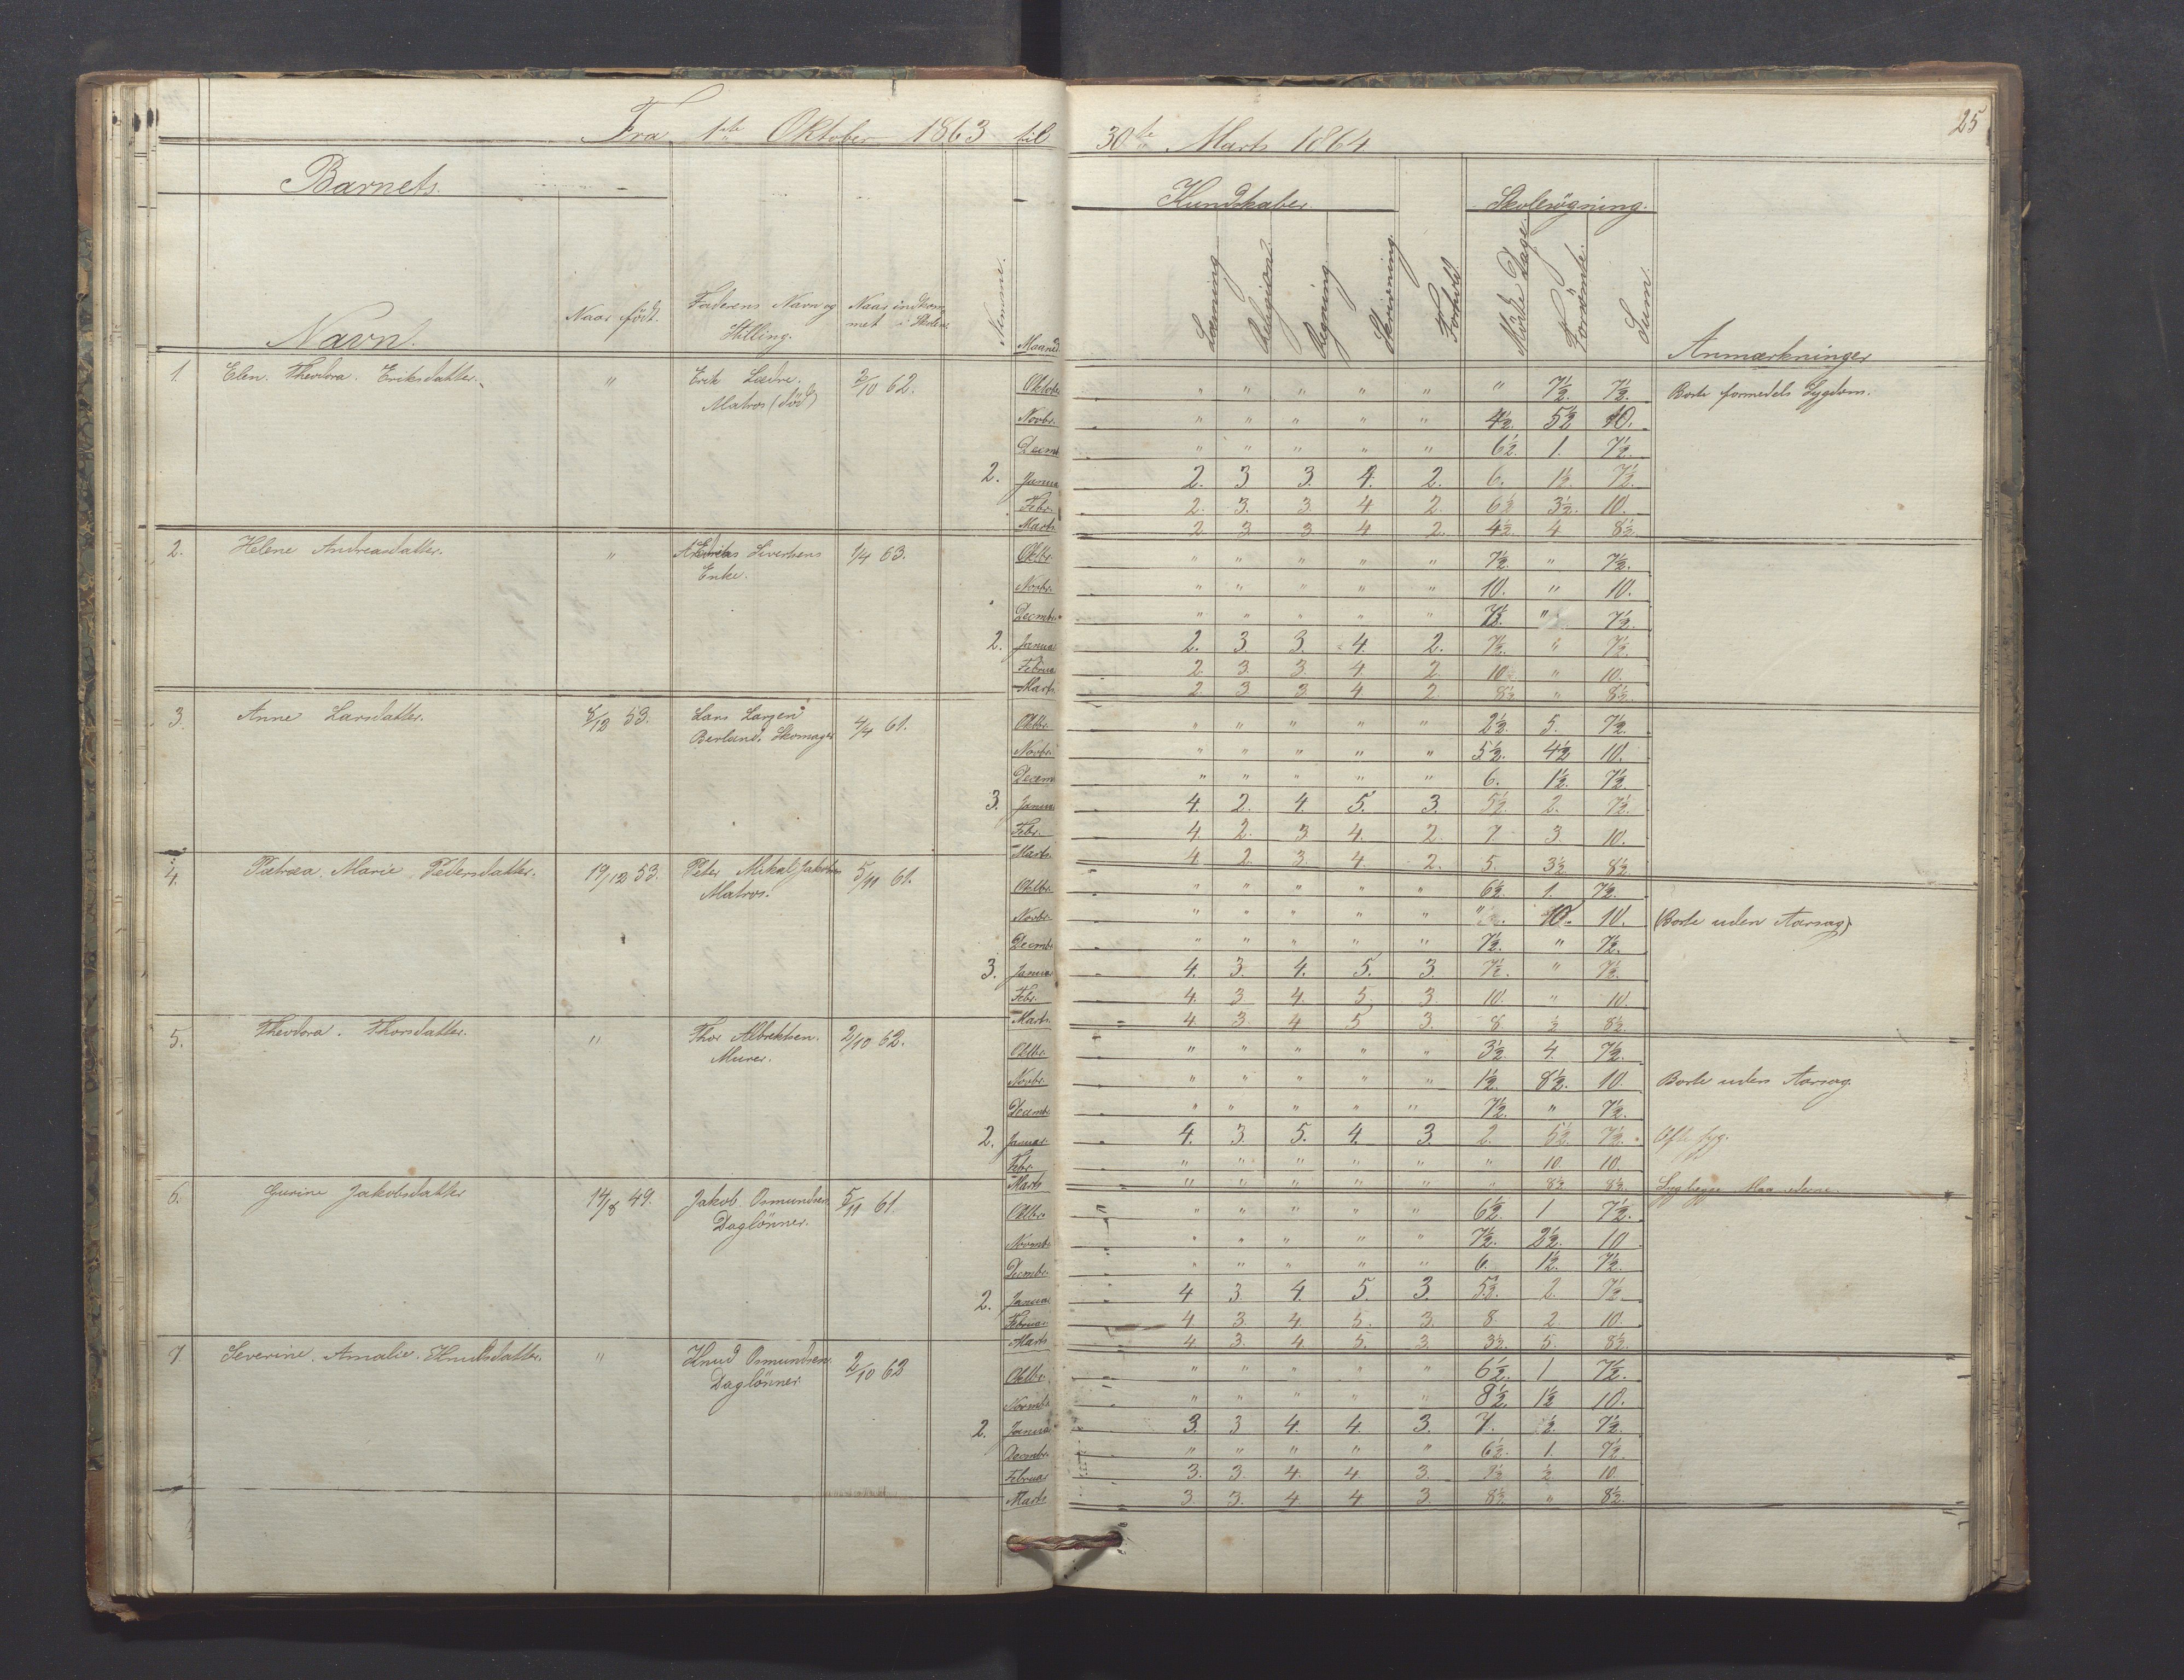 25
Fra 1ste Oktober 1863 til 30te Marts 1864.
Barnets. Kundskaber. Skolesøgning.
Navn. Naar født. Faderens Navn og Stilling. Naar indkommet i Skolen. Nemme. Maaned Læsning Religion Regning Skrivning Forhold Mödte Dage. Forsömte. Sum. Anmærkninger
1. Elen. Theodora. Eriksdatter. " Erik Lædre. 2/10 62. Oktobr " " " " " " 7½. 7½. Borte formedels Sygdom.
Matros (död)
Novbr. " " " " " 4½. 5½ 10.
Decmb " " " " " 6½. 1. 7½.
2. Janua 2. 3 3. 4. 2. 6. 1½. 7½.
Febr. 2. 3. 3. 4 2. 6½ 3½. 10.
Marts 2 3 3 4 2. 4½. 4 8½.
2. Helene Andreasdatter. " Sivertsens 1/4 63. Oktbr. " " " " " 7½. " 7½.
Enke.
Novbr. " " " " " 10. " 10.
Decmbr. " " " " " 7½. " 7½.
2. Janua 2. 3. 3. 4. 2. 7½. " 7½.
Februa 2. 3. 3. 4. 2. 10. " 10.
Marts 2 3 3. 4 2. 8½ " 8½.
3. Anne Larsdatter. 53. Lars Larsen 4/4 61. Oktbr. " " " " " 2½. 5. 7½.
Berland. Skomager
Novbr. " " " " " 5½. 4½ 10.
Decem " " " " " 6. 1½. 7½.
3. Janua 4. 2. 4. 5. 3. 5½. 2. 7½.
Febr. 4. 2. 3. 4. 2. 7. 3. 10.
Marts. 4 2. 3. 4. 2. 5. 3½ 8½
4. Petrea. Marie. Pedersdatter. 19/12 53. Peter Mikal Jakobsen 5/11 61. Oktbr. " " " " " 6½. 1. 7½.
Matros.
Novbr. " " " " " " 10. 10. (Borte uden Aarsag)
Decmb. " " " " " 7½. " 7½.
3. Janua 4. 3. 4. 5. 3. 7½. " 7½.
Febr. 4. 3 4. 5. 3 10. " 10.
Marts 4. 3. 4 5 3. 8 ½ 8½.
5. Theodora. Thorsdatter. " Thor Albrektsen. 2/10 62. Oktbr. " " " " " 3½ 4. 7½.
Murer.
Novbr. " " " " " 1½. 8½. 10. Borte uden Aarsag.
Decmb " " " " " 7½. " 7½.
2. Januar 4. 3. 5. 4. 3. 2. 5½. 7½. Ofte syg.
Febr. " " " " " " 10. 10.
Marts " " " " " " 8½ 8½. Syg begge Maanederne.
6. Gurine Jakobsdatter 14/8 49. Jakob Osmundsen 5/11 61. Oktbr. " " " " " 6½. 1 7½.
Daglönner.
Novemb. " " " " " 7½. 2½. 10
Decmbr. " " " " " 6. 1½. 7½.
2. Janua 4 3. 4. 5. 3. 5½. 2. 7½
Februar. 4 3. 4. 5. 3. 8. 2. 10.
Marts 4. 3. 4. 5. 3. 3½. 5. 8½.
7 Severine. Amalie. Knudsdatter. " Knud Osmundsen. 2/10 62 Oktbr. " " " " " 6½. 1 7½.
Daglönner
Novmb. " " " " " 8½. 1½ 10.
2. Janua 3. 3 4. 4. 3. 7. ½. 7½.
Decembr. " " " " " 6½. 1. 7½.
Februar 3. 3. 4. 4. 3. 9½ ½. 10.
Marts 3. 3. 4. 4 3. 8½. " 8½.